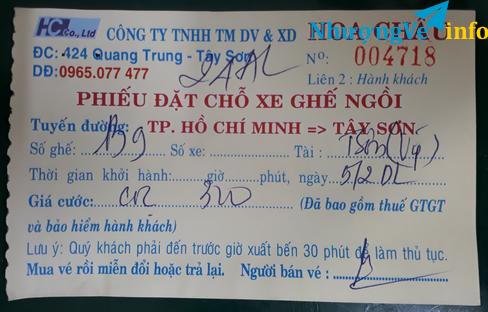 NhượngVé info
HC Co., Ltd
CÔNG TY TNHH TM DV & XD HOA CHÂU
ĐC: 424 Quang Trung - Tây Sơn
Nº: 004718
DĐ: 0965.077 477
Liên 2: Hành khách
PHIẾU ĐẶT CHỖ XE GHẾ NGỒI
Tuyến đường: TP. HỒ CHÍ MINH => TÂY SƠN
Số ghế: B9 Số xe: Tài :
Thời gian khởi hành: giờ phút, ngày 5/2 DL
Giá cước: 300 (Đã bao gồm thuế GTGT
và bảo hiểm hành khách)
Lưu ý: Quý khách phải đến trước giờ xuất bến 30 phút để làm thủ tục.
Mua vé rồi miễn đổi hoặc trả lại. Người bán vé :